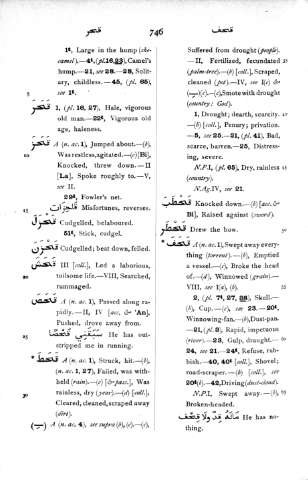 قحف
746
قنحر
1ᵗ, Large in the hump (she-
camel).—4ᵗ, (pl. 16, 23), Camel's
hump.—21, see 28.—28, Solit-
ary, childless.—45, (pl. 65),
see 1ᵗ.
1, (pl. 16, 27), Hale, vigorous
old man.—22ᵗ, Vigorous old
age, haleness.
A (n. ac. 1), Jumped about.—(b),
Was restless, agitated.—(c) [Bi],
Knocked, threw down.—II
[La], Spoke roughly to.—V,
see II.
22ᵗ, Fowler's net.
Misfortunes, reverses.
Cudgelled, belaboured.
51ᵗ, Stick, cudgel.
Cudgelled; beat down, felled.
III [coll.], Led a laborious,
toilsome life.—VIII, Searched,
rummaged.
A (n. ac. 1), Passed along ra-
pidly.—II, IV [acc. & ʿAn],
Pushed, drove away from.
He has out-
stripped me in running.
A (n. ac. 1), Struck, hit.—(b),
(n. ac. 1, 27), Failed, was with-
held (rain).—(c) [& pass.], Was
rainless, dry (year).—(d) [coll.],
Cleared, cleaned, scraped away
(dirt).
A (n. ac. 4), see supra (b), (c).—(c),
Suffered from drought (people).
—II, Fertilized, fecundated
(palm-tree).—(b) [coll.], Scraped,
cleaned (pot).—IV, see I(c) &
(c).—(c), Smote with drought
(country : God).
1, Drought; dearth, scarcity.
—(b) [coll.], Penury; privation.
—5, see 25.—21, (pl. 41), Bad,
scarce, barren.—25, Distress-
ing, severe.
N.P.I, (pl. 65), Dry, rainless
(country).
N.Ag.IV, see 21.
Knocked down.—(b) [acc. &
Bi], Raised against (sword).
Drew the bow.
A (n. ac. 1), Swept away every-
thing (torrent).—(b), Emptied
a vessel.—(c), Broke the head
of.—(d), Winnowed (grain).—
VIII, see I(a), (b).
(b), Cup.—(c), see 23.—20ᵗ,
Winnowing-fan.—(b), Dust-pan.
—21, (pl. 3), Rapid, impetuous
(river).—23, Gulp, draught.—
24, see 21.—24ᵗ, Refuse, rub-
bish.—40, 40ᵗ [coll.], Shovel;
road-scraper.—(b) [coll.], see
20ᵗ(b).—42, Driving (dust-cloud).
N.P.I, Swept away.—(b),
Broken-headed.
He has no-
thing.